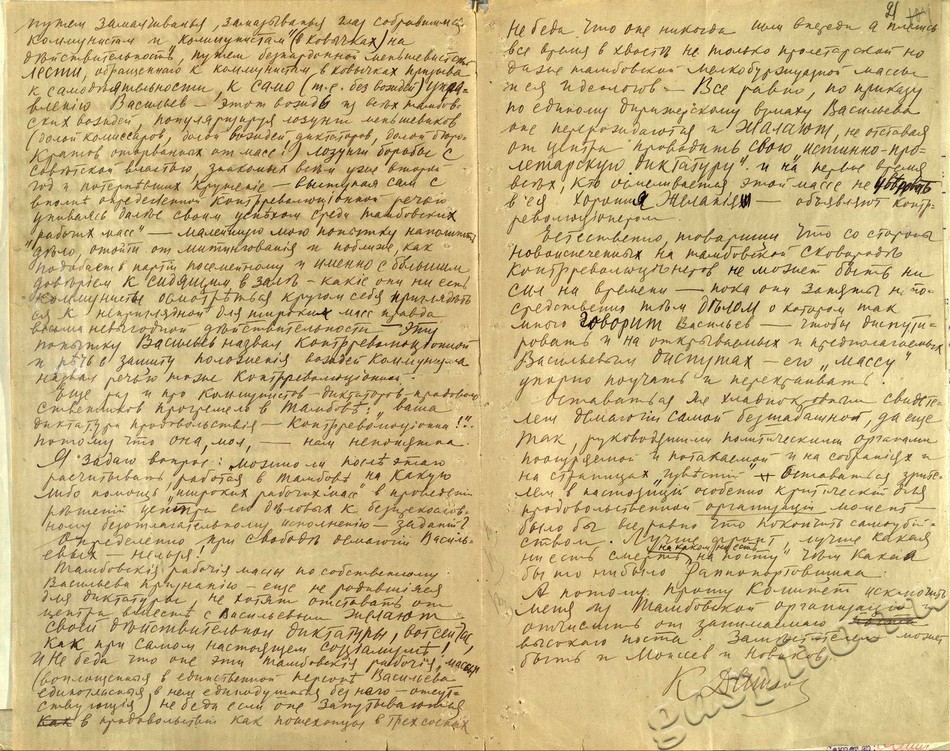 путем замалчиванья, замазыванья глаз собравшимся
коммунистам и "коммунистам" (в ковычках) на
действительность, путем безпардонной меньшевистск.
лести, обращенного к коммунистам в ковычках призыва
к самодѣятельности, к само (т.е. без вождей) управ-
влению Васильев — этот вождь из всѣх тамбов-
ских вождей, популяризируя лозунги меньшевиков
(долой комиссаров, долой вождей, диктаторов, долой бюро-
кратов оторванных от масс!) лозунги борьбы с
совѣтской властью, знакомых всѣм уже второй
год и потерпѣвших крушение — выступая сам с
вполнѣ определенной контрреволюционной речью
упиваясь болѣе своим успѣхом среди тамбовских
"рабочих масс" — малейшую мою попытку напомнить
дѣло, отойти от митингования и поближе как
подобает партии посмотреть и именно с большим
довѣрием к сидящим в залѣ — какие они ни есть
коммунисты осмотрѣться кругом себя приглядѣть
ся к неприглядной для широких масс правда
весьма невыгодной дѣйствительности — эту
попытку Васильев назвал контрреволюционной
и рѣчь в защиту положения вождей коммунизма
назвал речью тоже контрреволюционной.
Еще раз и про коммунистов-диктаторов-продоволь
ственников прогремело в Тамбовѣ: "ваша
диктатура продовольствия — контрреволюционна!".
потому что она, мол, — нам непонятна.
Я задаю вопрос: можно ли послѣ этаго
расчитывать работая в Тамбовѣ на какую
либо помощь "широких рабочих масс" в проведении
рѣшений центра его дѣловых к безпрекослов-
ному безотлагательному исполнению — заданий?
Определенно при свободѣ демагогии Василь-
евых — нельзя!
Тамбовския рабочия массы по собственному
Васильева признанию — еще не родившияся
для диктатуры, не хотят отставать от
центра вмѣсте с Васильевым желают
своей дѣйствительной диктатуры, вот сейчас,
как при самом настоящем социализмѣ!
И не беда что оне эти тамбовския рабочия массы
(воплощенныя в единственной персоне Васильева
единогласныя в нем единодушныя без него — отсут-
ствующия) не беда если оне запутываются
в продовольствии как пошехонцы в трех соснах
не беда что оне никогда шли впереди а плелись
все время в хвостѣ не только пролетарской но
даже тамбовской мелкобуржуазной массы
идеологов — Все равно, по приказу
по единому дирижерскому взмаху Васильева
оне перерождаются и желают, не отставая
от центра проводить свою "истинно-про-
летарскую диктатуру" и на первое время
всѣх, кто осмеливается этой массе не говорить
в ея хорошия желания — объявляют контр-
революционером.
Естественно, товарищи, что со стороны
новоиспеченных на тамбовской сковородѣ
контрреволюционеров не может быть ни
сил ни времени — пока они заняты непо-
средственно тѣм дѣлом о котором так
много говорит Васильев — чтобы диспути-
ровать и на открываемых и предполагаемых
Васильевым диспутах — его "массу"
упорно поучать и перекраивать.
Оставаться же хладнокровным свидѣте-
лем демагогии самой безшабашной, да еще
так, руководящими политическими органами
поощряемой и потакаемой и на собраниях и
на страницах "Известий" — оставаться зрите-
лем в настоящий особенно критический для
продовольственной организации момент —
было бы всеравно что покончить самоубий-
ством. Лучше фронт, лучше какая
ни есть смерть на каком ни есть "на посту" чѣм какая
бы то нибыло Раппопортовщина.
А потому прошу Комитет исключить
меня из Тамбовской организации
отчислить от занимаемаго
высокаго поста. Заместителем может
быть и Моисеев и Новиков.
21